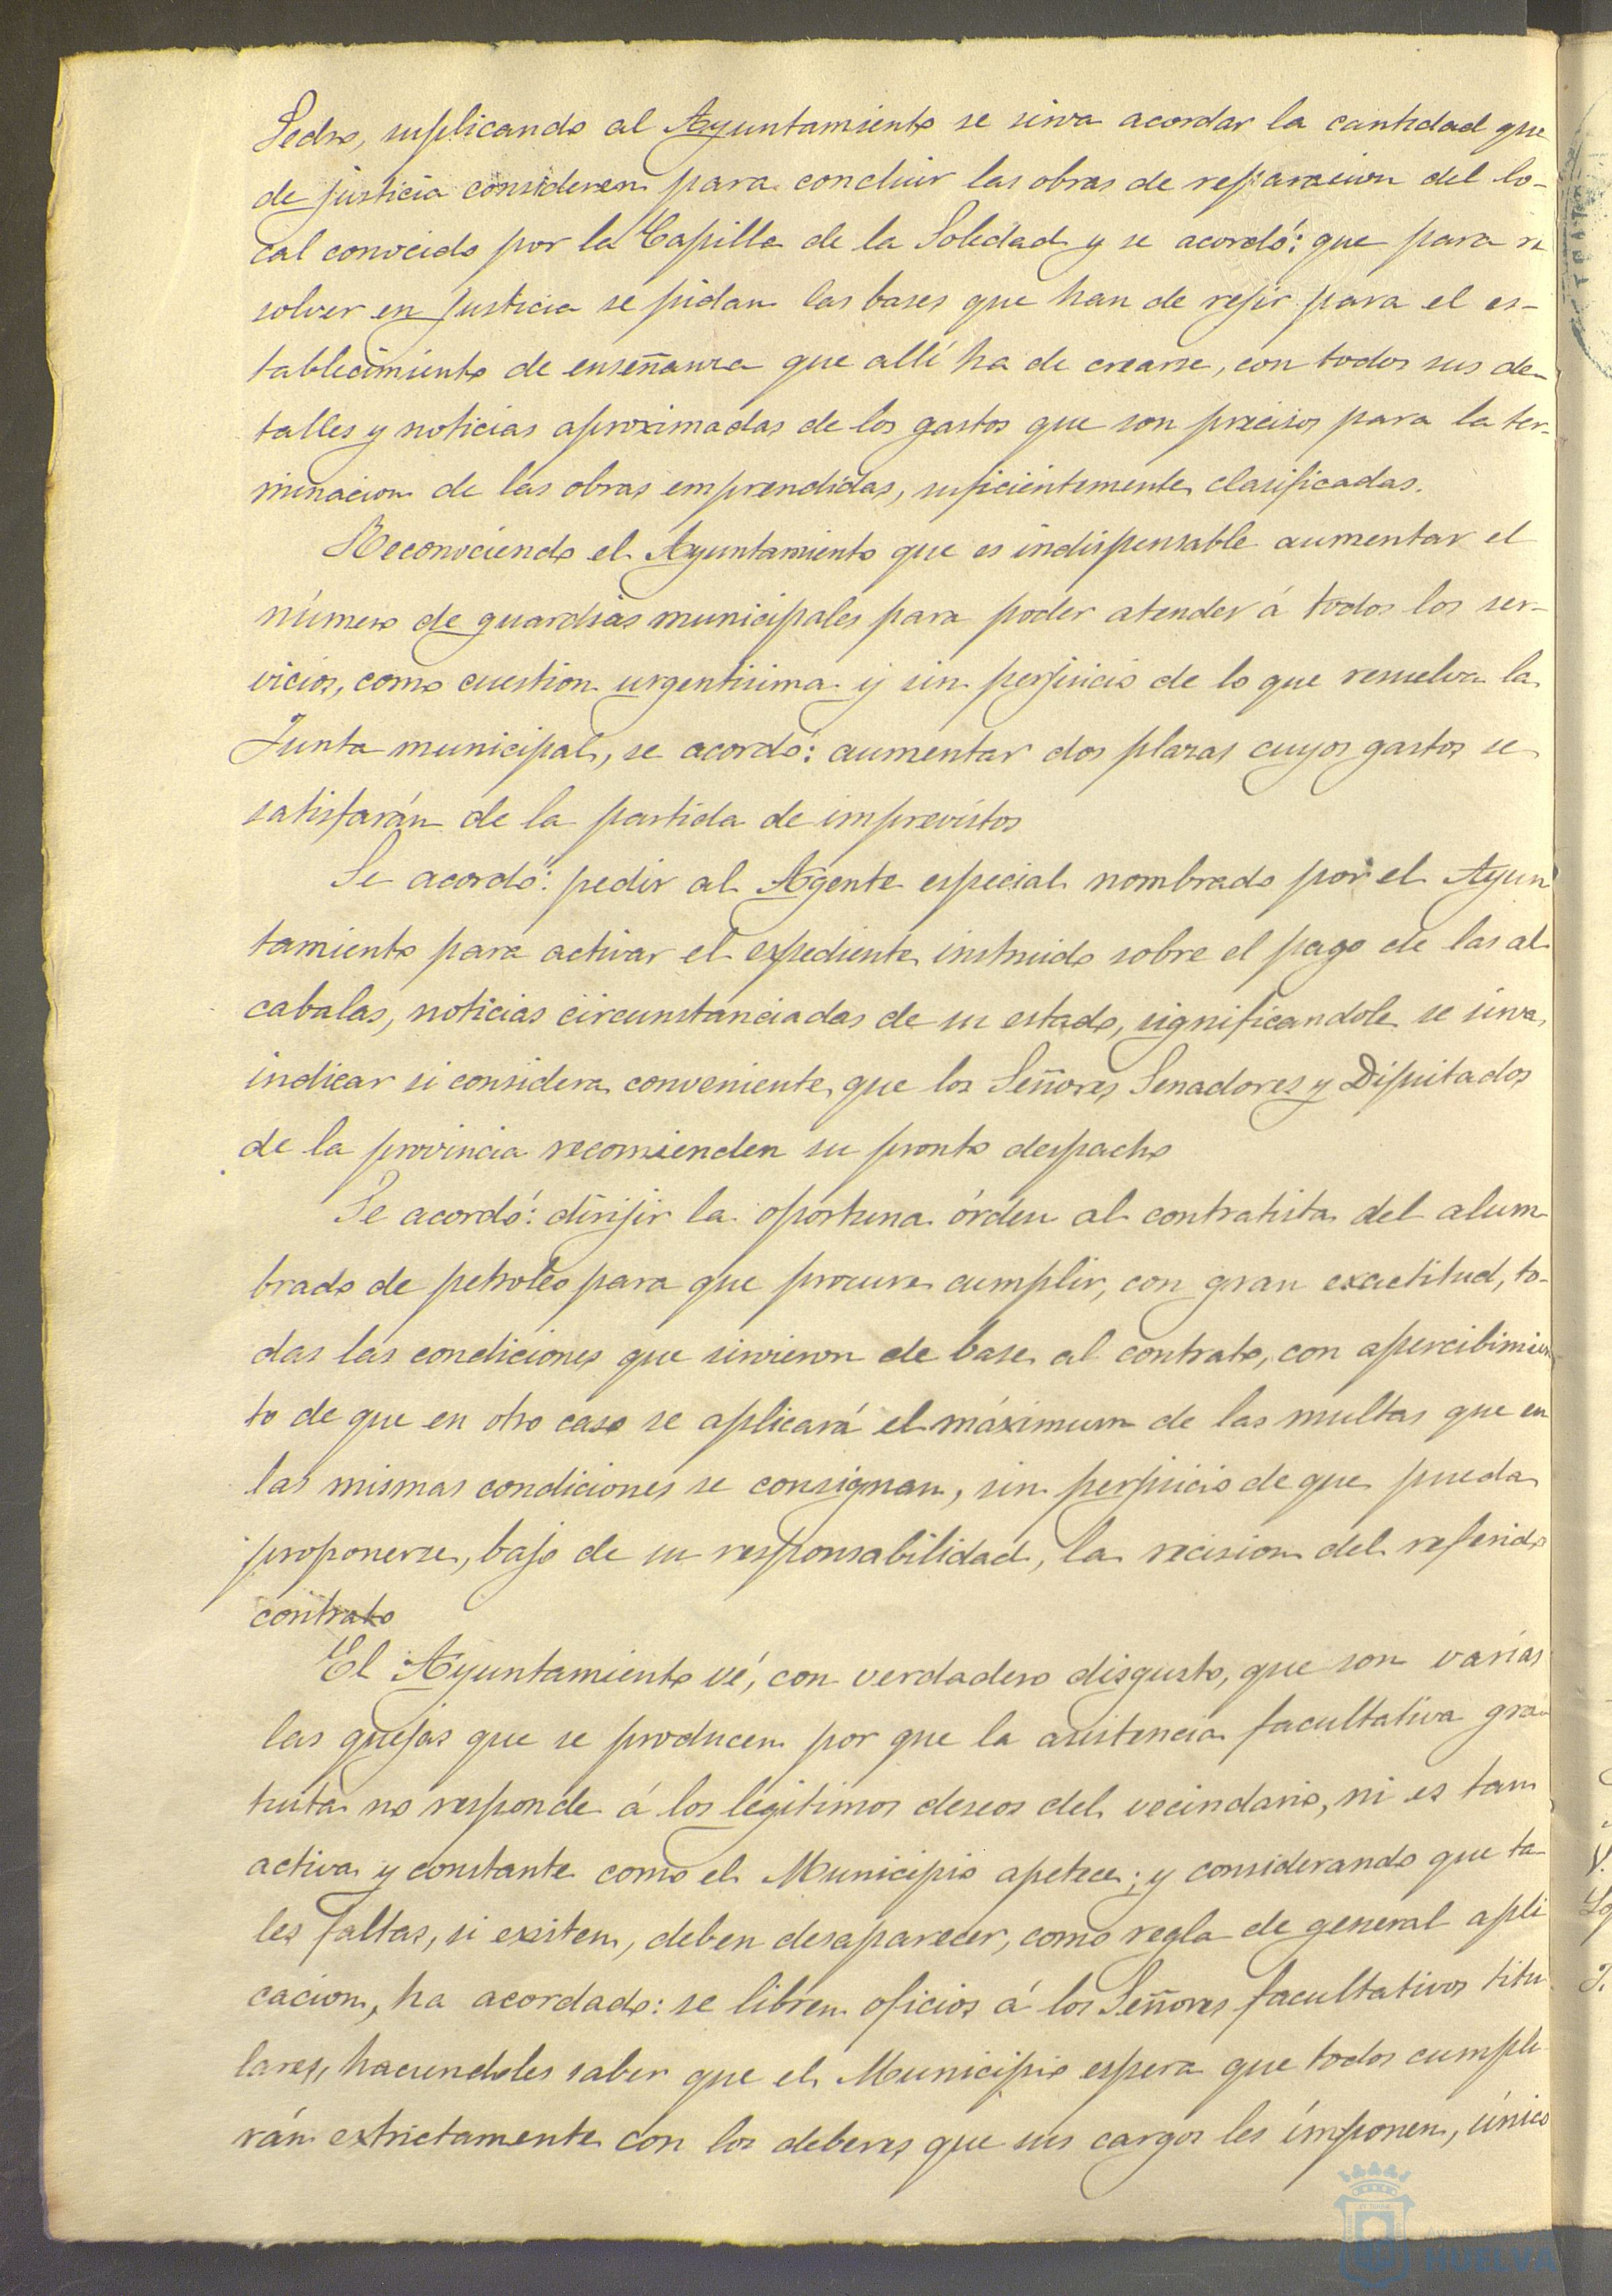 Pedro, suplicando al Ayuntamiento se sirva acordar la cantidad que
de justicia consideren para concluir las obras de reparacion del lo-
cal conocido por la Capilla de la Soledad y se acordó: que para re
solver en justicia se pidan las bases que han de rejir para el es-
tablecimiento de enseñanza que allí ha de crearse, con todos sus de-
talles y noticias aproximadas de los gastos que son precisos para la ter-
minacion de las obras emprendidas, suficientemente clasificadas.
Reconociendo el Ayuntamiento que es indispensable aumentar el
número de guardias municipales para poder atender á todos los ser-
vicios, como cuestion urgentisima y sin perjuicio de lo que resuelva la
Junta municipal, se acordó: aumentar dos plazas cuyos gastos se
satisfarán de la partida de imprevistos
Se acordó: pedir al Agente especial nombrado por el Ayun
tamiento para activar el espediente instruido sobre el pago de las al
cabalas, noticias circunstanciadas de su estado, significandole se sirva
indicar si considera conveniente que los Señores Senadores y Diputados
de la provincia recomienden su pronto despacho
Se acordó: dirijir la oportuna órden al contratista del alum
brado de petroleo para que procure cumplir, con gran exactitud, to-
das las condiciones que sirvieron de base al contrato, con apercibimien
to de que en otro caso se aplicará el máximum de las multas que en
las mismas condiciones se consignan, sin perjuicio de que pueda
proponerse, bajo de su responsabilidad, la recision del referido
contrato
El Ayuntamiento vé, con verdadero disgusto, que son varias
las quejas que se producen por que la asistencia facultativa gra-
tuita no responde á los legitimos deseos del vecindario, ni es tan
activa y constante como el Municipio apetece; y considerando que ta-
les faltas, si existen, deben desaparecer, como regla de general apli
cacion, ha acordado: se libren oficios á los Señores facultativos titu
lares, haciendoles saber que el Municipio espera que todos cumpli-
rán extrictamente con los deberes que sus cargos les imponen, único
HUELVA